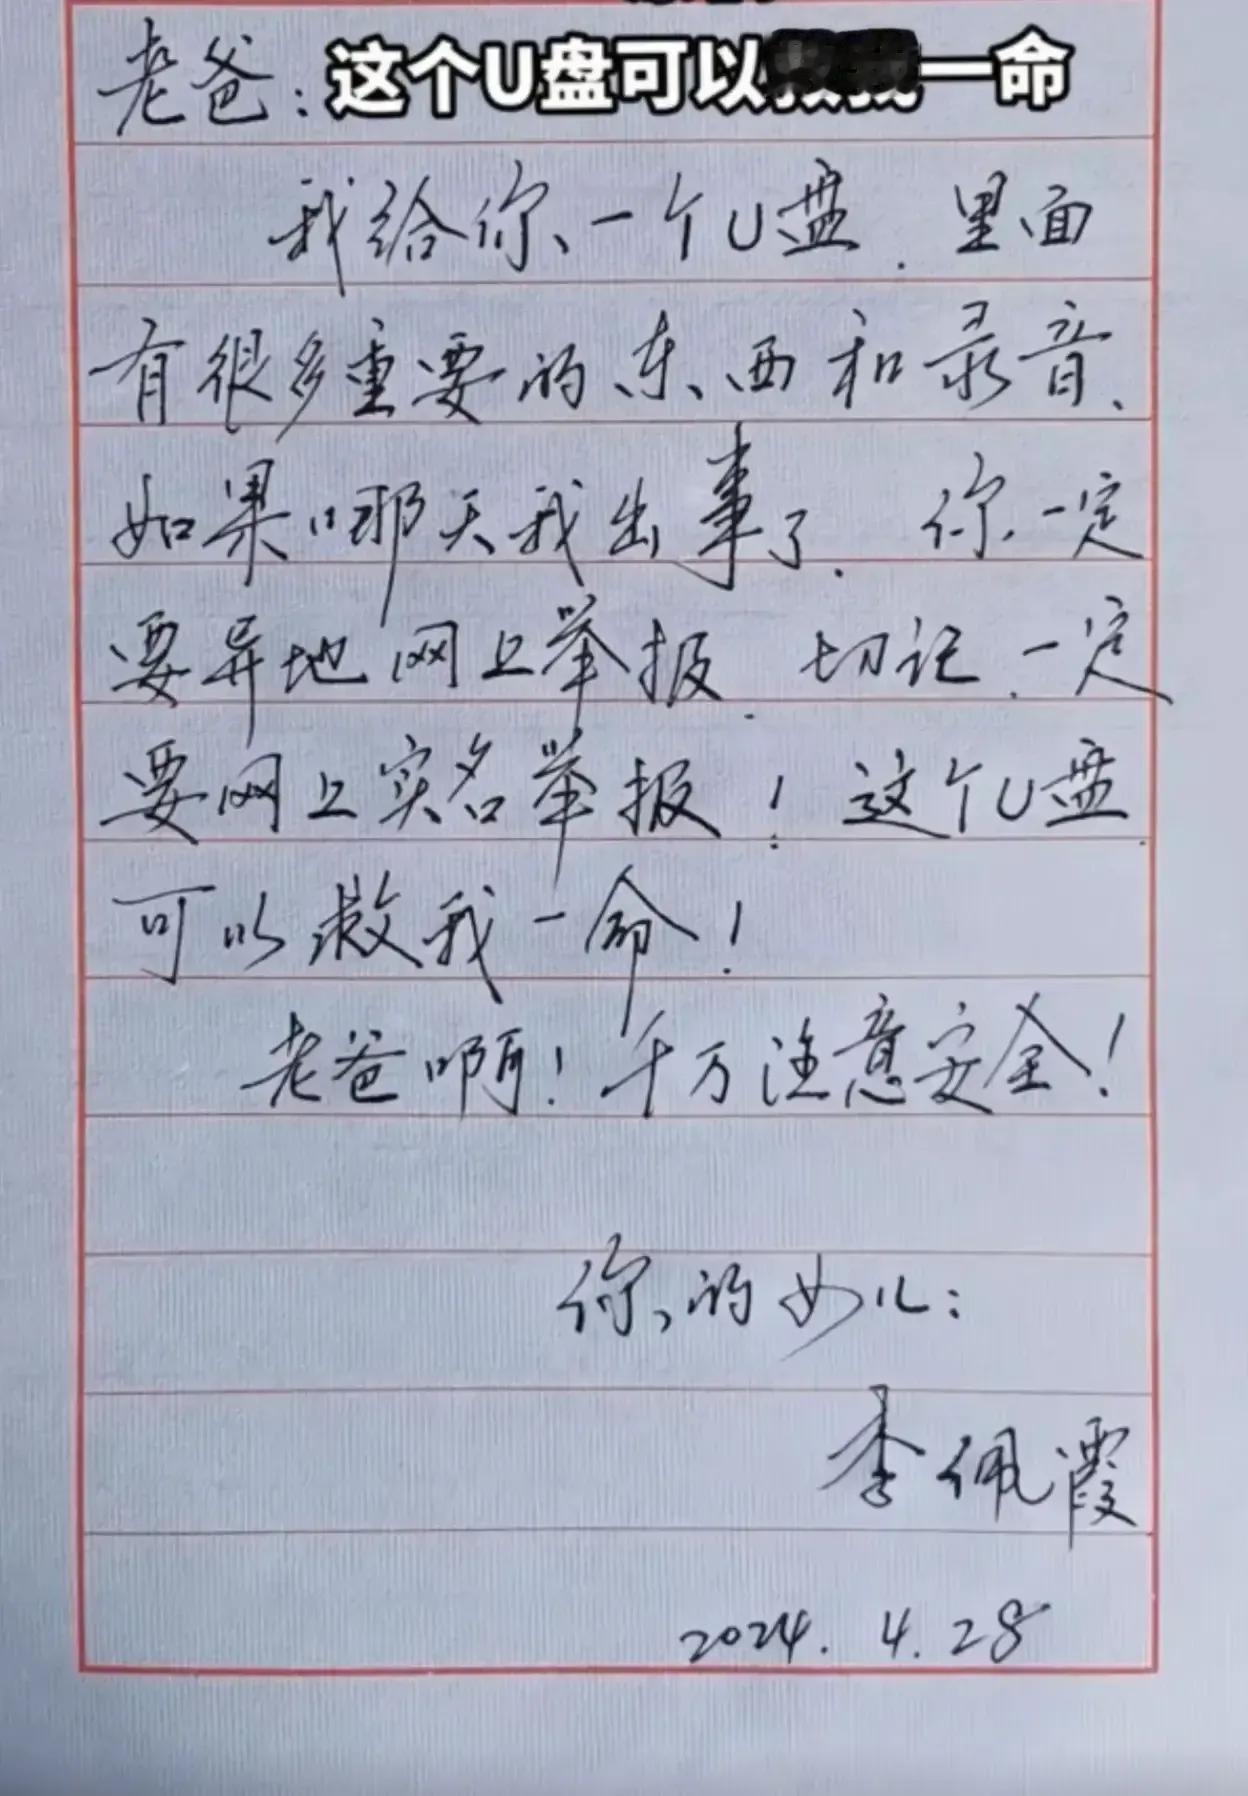 老爸：
这个U盘可以救我一命
我给你一个U盘.里面
有很多重要的东西和录音、
如果哪天我出事了.你一定
要异地网上举报.切记.一定
要网上实名举报！这个U盘.
可以救我一命！
老爸啊！千万注意安全！
你的女儿：
李佩霞
2024.4.28